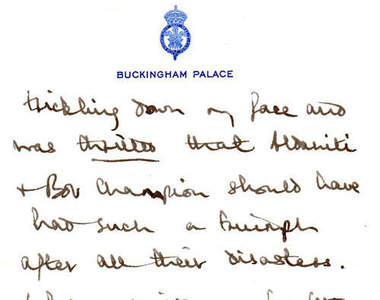 BUCKINGHAM PALACE
trickling down my face and
was thrilled that Aldaniti
& Bob Champion should have
had such a triumph
after all their disasters.